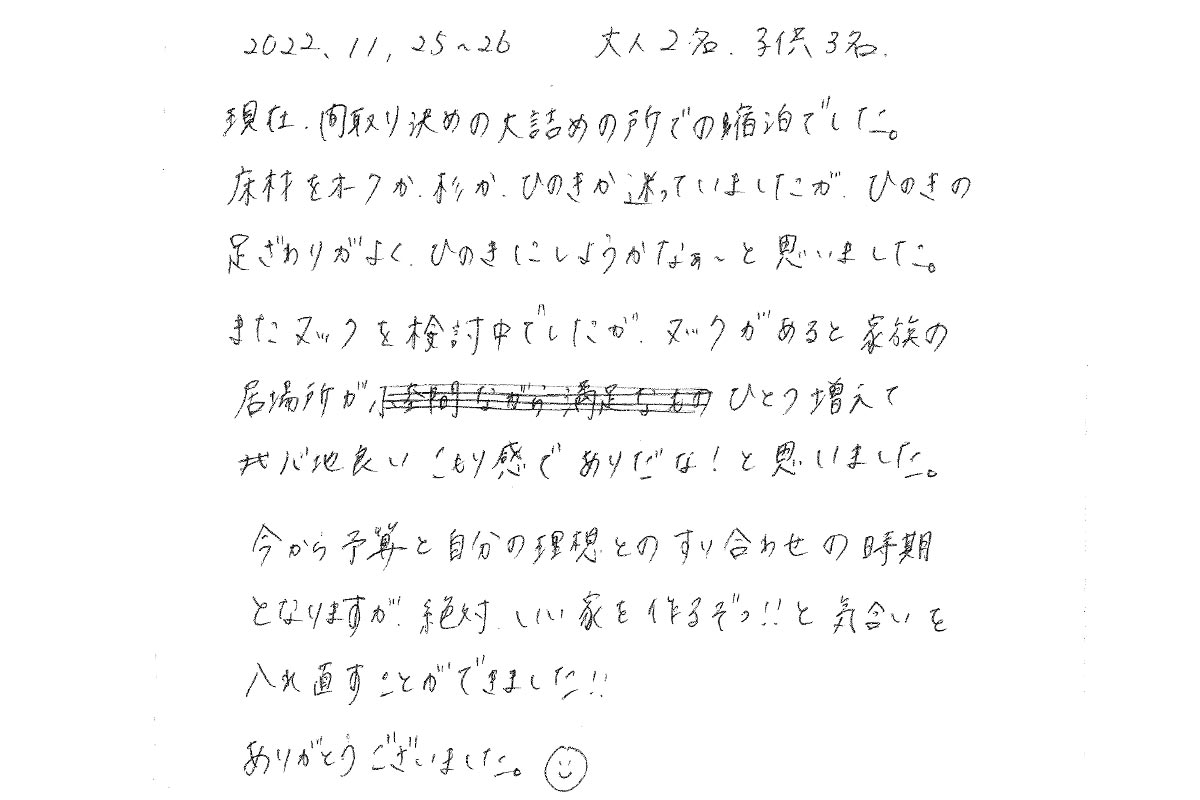 2022、11、25~26 大人2名.子供3名.
現在、間取り決めの大詰めの所での宿泊でした。
床材をオークか、杉か、ひのきか迷っていましたが、ひのきの
足ざわりがよく、ひのきにしようかなぁ~と思いました。
またヌックを検討中でしたが、ヌックがあると家族の
居場所が ひとつ増えて
心地良い こもり感で ありだな!と思いました。
今から予算と自分の理想とのすり合わせの時期
となりますが、絶対、いい家を作るぞっ!!と気合いを
入れ直すことができました!!
ありがとうございました。